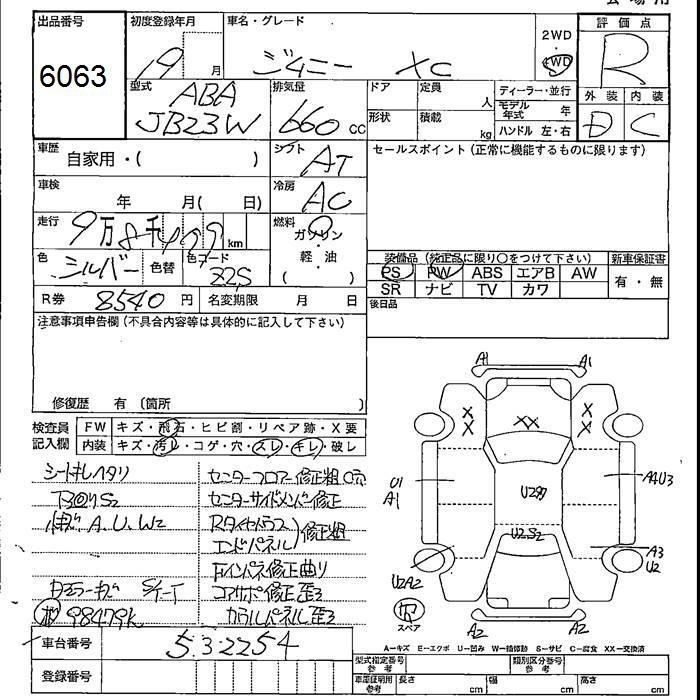 会場用
出品番号
6063
初度登録年月
19 月
車名・グレード
ジムニー XC
2WD
4WD
評価点
R
外装 内装
D C
型式
ABA
JB23W
排気量
660 cc
ドア
定員 人
形状
積載 kg
ディーラー・並行
モデル年式 年
ハンドル 左・右
車歴
自家用・( )
シフト
AT
セールスポイント(正常に機能するものに限ります)
車検
年 月( 日)
冷房
AC
走行
9万8千499km
燃料
ガソリン
・
軽・油
( )
色
シルバー
色替
色コード
Z2S
装備品(純正品に限り○をつけて下さい)
新車保証書
PS PW ABS エアB AW
SR ナビ TV カワ
有・無
R券 8540円
名変期限 月 日
後日品
注意事項申告欄(不具合内容等は具体的に記入して下さい)
修復歴 有 〔箇所 〕
検査員
記入欄
FW キズ・飛石・ヒビ割・リペア跡・X要
内装 キズ・汚レ・コゲ・穴・スレ・キレ・破レ
シートキレヘタリ
下回りS2
A.U.W2
98479K
センターフロアー修正粗 穴
センターサイドメンバー修正
Rタイヤハウス
エンドパネル
修正粗
Fインパネ修正曲り
コアサポ修正歪ミ
カウルパネル歪ミ
車台番号
532254
登録番号
A1
A1
XX
XX
XX
U1
A1
U2S2
A4U3
U2A2
A3
U2
R
スペア
A2
A2
A−キズ E−エクボ U−凹み W−補修跡 S−サビ C−腐食 XX−交換済
型式指定番号
参考
類別区分番号
参考
車庫証明用
参考
長さ cm
幅 cm
高さ cm